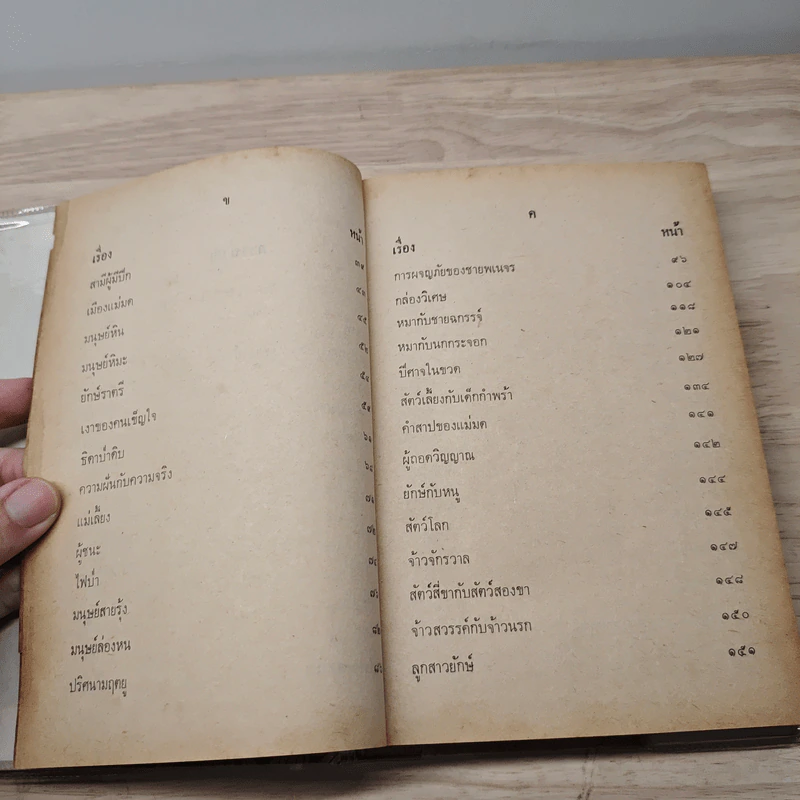 ข
เรื่อง หน้า
สามีผู้มีปีก ๓๙
เมืองแม่มด ๔๑
มนุษย์หิน ๔๕
มนุษย์หิมะ ๕๒
ยักษ์ราตรี ๕๔
เงาของคนเข็ญใจ
ธิดาป่าดิบ
ความฝันกับความจริง ๖๔
แม่เลี้ยง
ผู้ชนะ
ไฟป่า
มนุษย์สายรุ้ง
มนุษย์ล่องหน
ปริศนามฤตยู
ค
เรื่อง หน้า
การผจญภัยของชายพเนจร ๙๖
กล่องวิเศษ ๑๐๔
หมากับชายฉกรรจ์ ๑๑๘
หมากับนกกระจอก ๑๒๑
ปีศาจในขวด ๑๒๗
สัตว์เลี้ยงกับเด็กกำพร้า ๑๓๔
คำสาปของแม่มด ๑๔๑
ผู้ถอดวิญญาณ ๑๔๒
ยักษ์กับหนู ๑๔๔
สัตว์โลก ๑๔๕
จ้าวจักรวาล ๑๔๗
สัตว์สี่ขากับสัตว์สองขา ๑๔๘
จ้าวสวรรค์กับจ้าวนรก ๑๕๐
ลูกสาวยักษ์ ๑๕๑